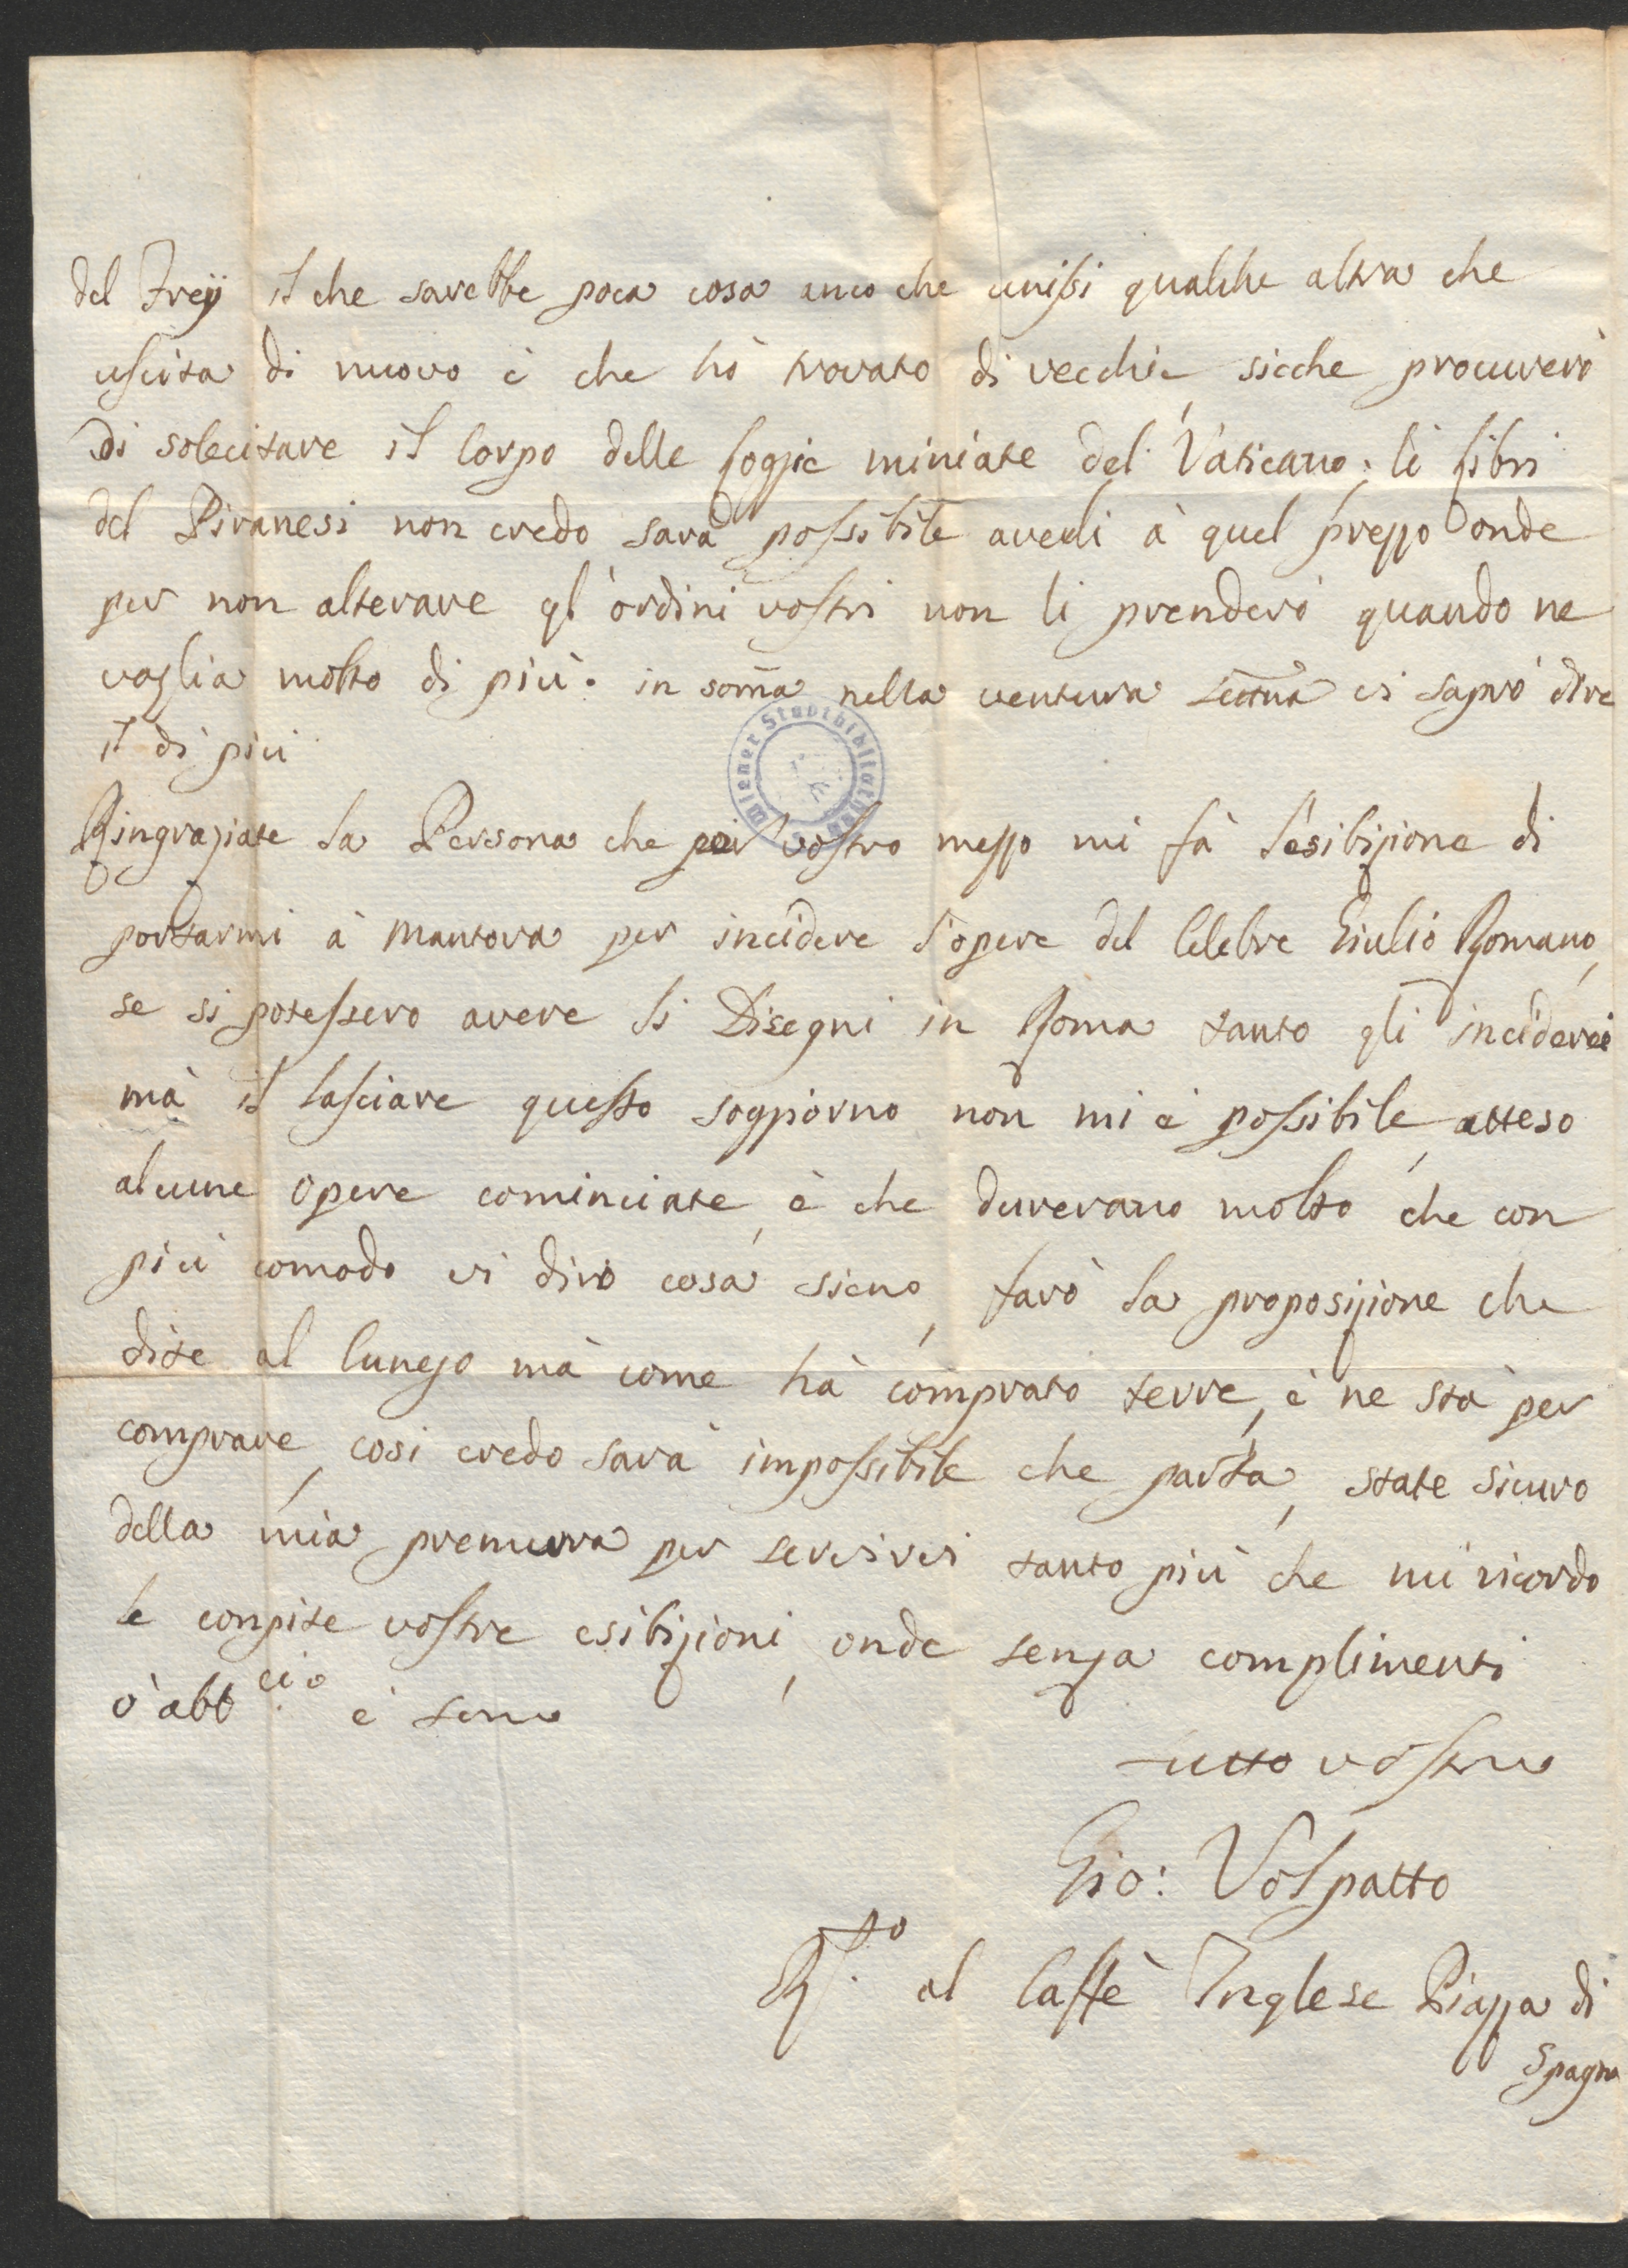 del Freÿ il che sarebbe poca cosa anco che unissi qualche altra che
uscita di nuovo è che hò trovato di vecchie sicche procurerò
di solecitare il Corpo delle logie miniate del Vaticano; li libri
del Piranesi non credo sarà possibile averli à quel prezzo onde
per non alterare gl'ordini vostri non li prenderò quando ne
vaglia molto di più. in som̄a nella ventura vi saprò dire
il di più
Ringraziate la Persona che per vostro mezzo mi fà l'esibizione di
portarmi à Mantova per incidere l'opere del Celebre Giulio Romano,
se si potessero avere li Disegni in Roma tanto gli inciderei
mà il lasciare questo soggiorno non mi è possibile, atteso
alcune opere cominciate, è che dureranno molto che con
più comodo vi dirò cosa sieno, farò la proposizione che
dite al Lunego mà come hà comprato terre, è ne stà per
comprare, cosi credo sarà impossibile che parta, state sicuro
della mia premurra per servirvi tanto più che mi ricordo
le conpite vostre esibizioni, onde senza complimenti
v'abb.cio è sono
tutto vostro
Gio: Volpatto
al Caffè Inglese Piazza di
Spagna
Wiener Stadtbibliothek